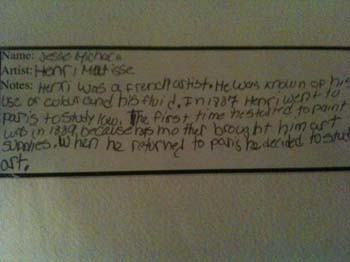 Name: Jesse Michara
Artist: Henri Matisse
Notes: Henri was a French artist. He was known of his
use of colour and his fluid. In 1887 Henri went to
paris to study law. The first time he started to paint
was in 1889, because his mother brought him art
supplies. When he returned to paris he decided to study
art.